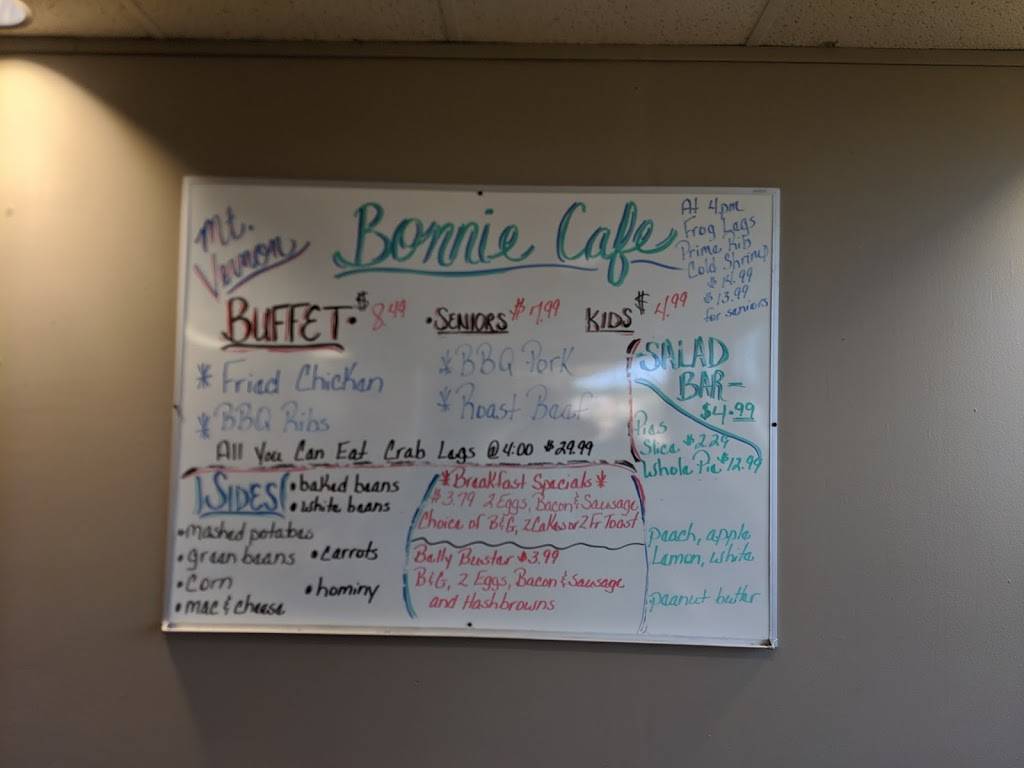 Mt.
Vernon
Bonnie Cafe
At 4pm
Frog Legs
Prime Rib
Cold Shrimp
$14.99
$13.99
for seniors
BUFFET • $8.49
• SENIORS $7.99
KIDS $4.99
* Fried Chicken
* BBQ Ribs
* BBQ Pork
* Roast Beef
All You Can Eat Crab Legs @ 4:00 $29.99
SALAD
BAR –
$4.99
Pies
Slice $2.29
Whole Pie $12.99
peach, apple
Lemon, white
peanut butter
SIDES
• baked beans
• white beans
• mashed potatoes
• green beans
• carrots
• corn
• hominy
• mac & cheese
* Breakfast Specials *
$3.79 2 Eggs, Bacon & Sausage
Choice of B&G, 2 Cakes or 2 Fr Toast
Belly Buster $3.99
B&G, 2 Eggs, Bacon & Sausage
and Hashbrowns